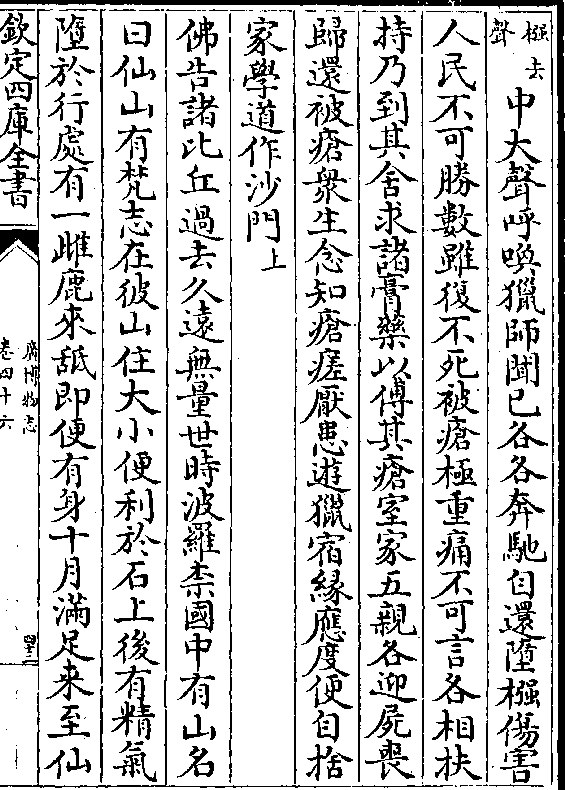 橛去聲中大聲呼喚獵師聞已各各奔馳自還墮橛傷害
人民不可勝數雖復不死被瘡極重痛不可言各相扶
持乃到其舍求諸膏藥以傅其瘡室家五親各迎屍喪
歸還被瘡衆生念知瘡瘥厭患遊獵宿緣應度便自捨
家學道作沙門上
佛告諸比丘過去久遠無量世時波羅柰國中有山名
曰仙山有梵志在彼山住大小便利於石上後有精氣
墮於行處有一雌鹿來舐即便有身十月滿足来至仙
欽定四庫全書
廣博物志
卷四十六